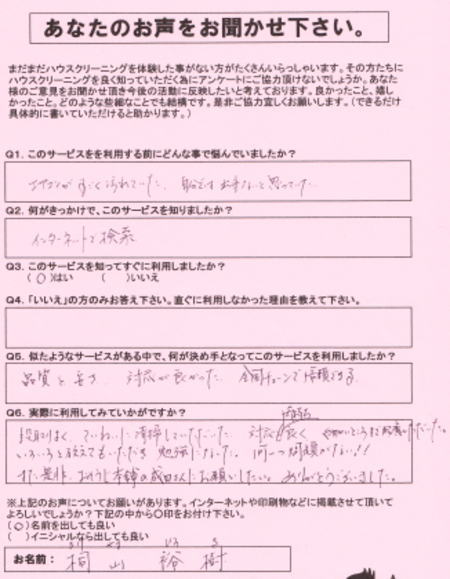 あなたのお声をお聞かせ下さい。
まだまだハウスクリーニングを体験した事がない方がたくさんいらっしゃいます。その方たちに
ハウスクリーニングを良く知っていただく為にアンケートにご協力頂けないでしょうか。あなた
様のご意見をお聞かせ頂き今後の活動に反映したいと考えております。良かったこと、嬉し
かったこと。どのような些細なことでも結構です。是非ご協力宜しくお願いします。(できるだけ
具体的に書いていただけると助かります。)
Q1. このサービスをを利用する前にどんな事で悩んでいましたか?
エアコンがすごく汚れていた。自分では出来ないと思っていた
Q2. 何がきっかけで、このサービスを知りましたか?
インターネットで検索
Q3. このサービスを知ってすぐに利用しましたか?
(○)はい ( )いいえ
Q4. 「いいえ」の方のみお答え下さい。直ぐに利用しなかった理由を教えて下さい。
Q5. 似たようなサービスがある中で、何が決め手となってこのサービスを利用しましたか?
品質と安さ 対応が良かった 全国チェーンで信頼できる
Q6. 実際に利用してみていかがですか?
段取りよく、ていねいに清掃していただいた 対応も良く
いろいろと教えてもいただき勉強になった。何一つ不満がない!!
また是非、おそうじ本舗の成田さんにお願いしたい。ありがとうございました。
※上記のお声についてお願いがあります。インターネットや印刷物などに掲載させて頂いて
よろしいでしょうか?下記の中から〇印をお付け下さい。
(○)名前を出しても良い
( )イニシャルなら出しても良い
お名前: 桐山 裕樹